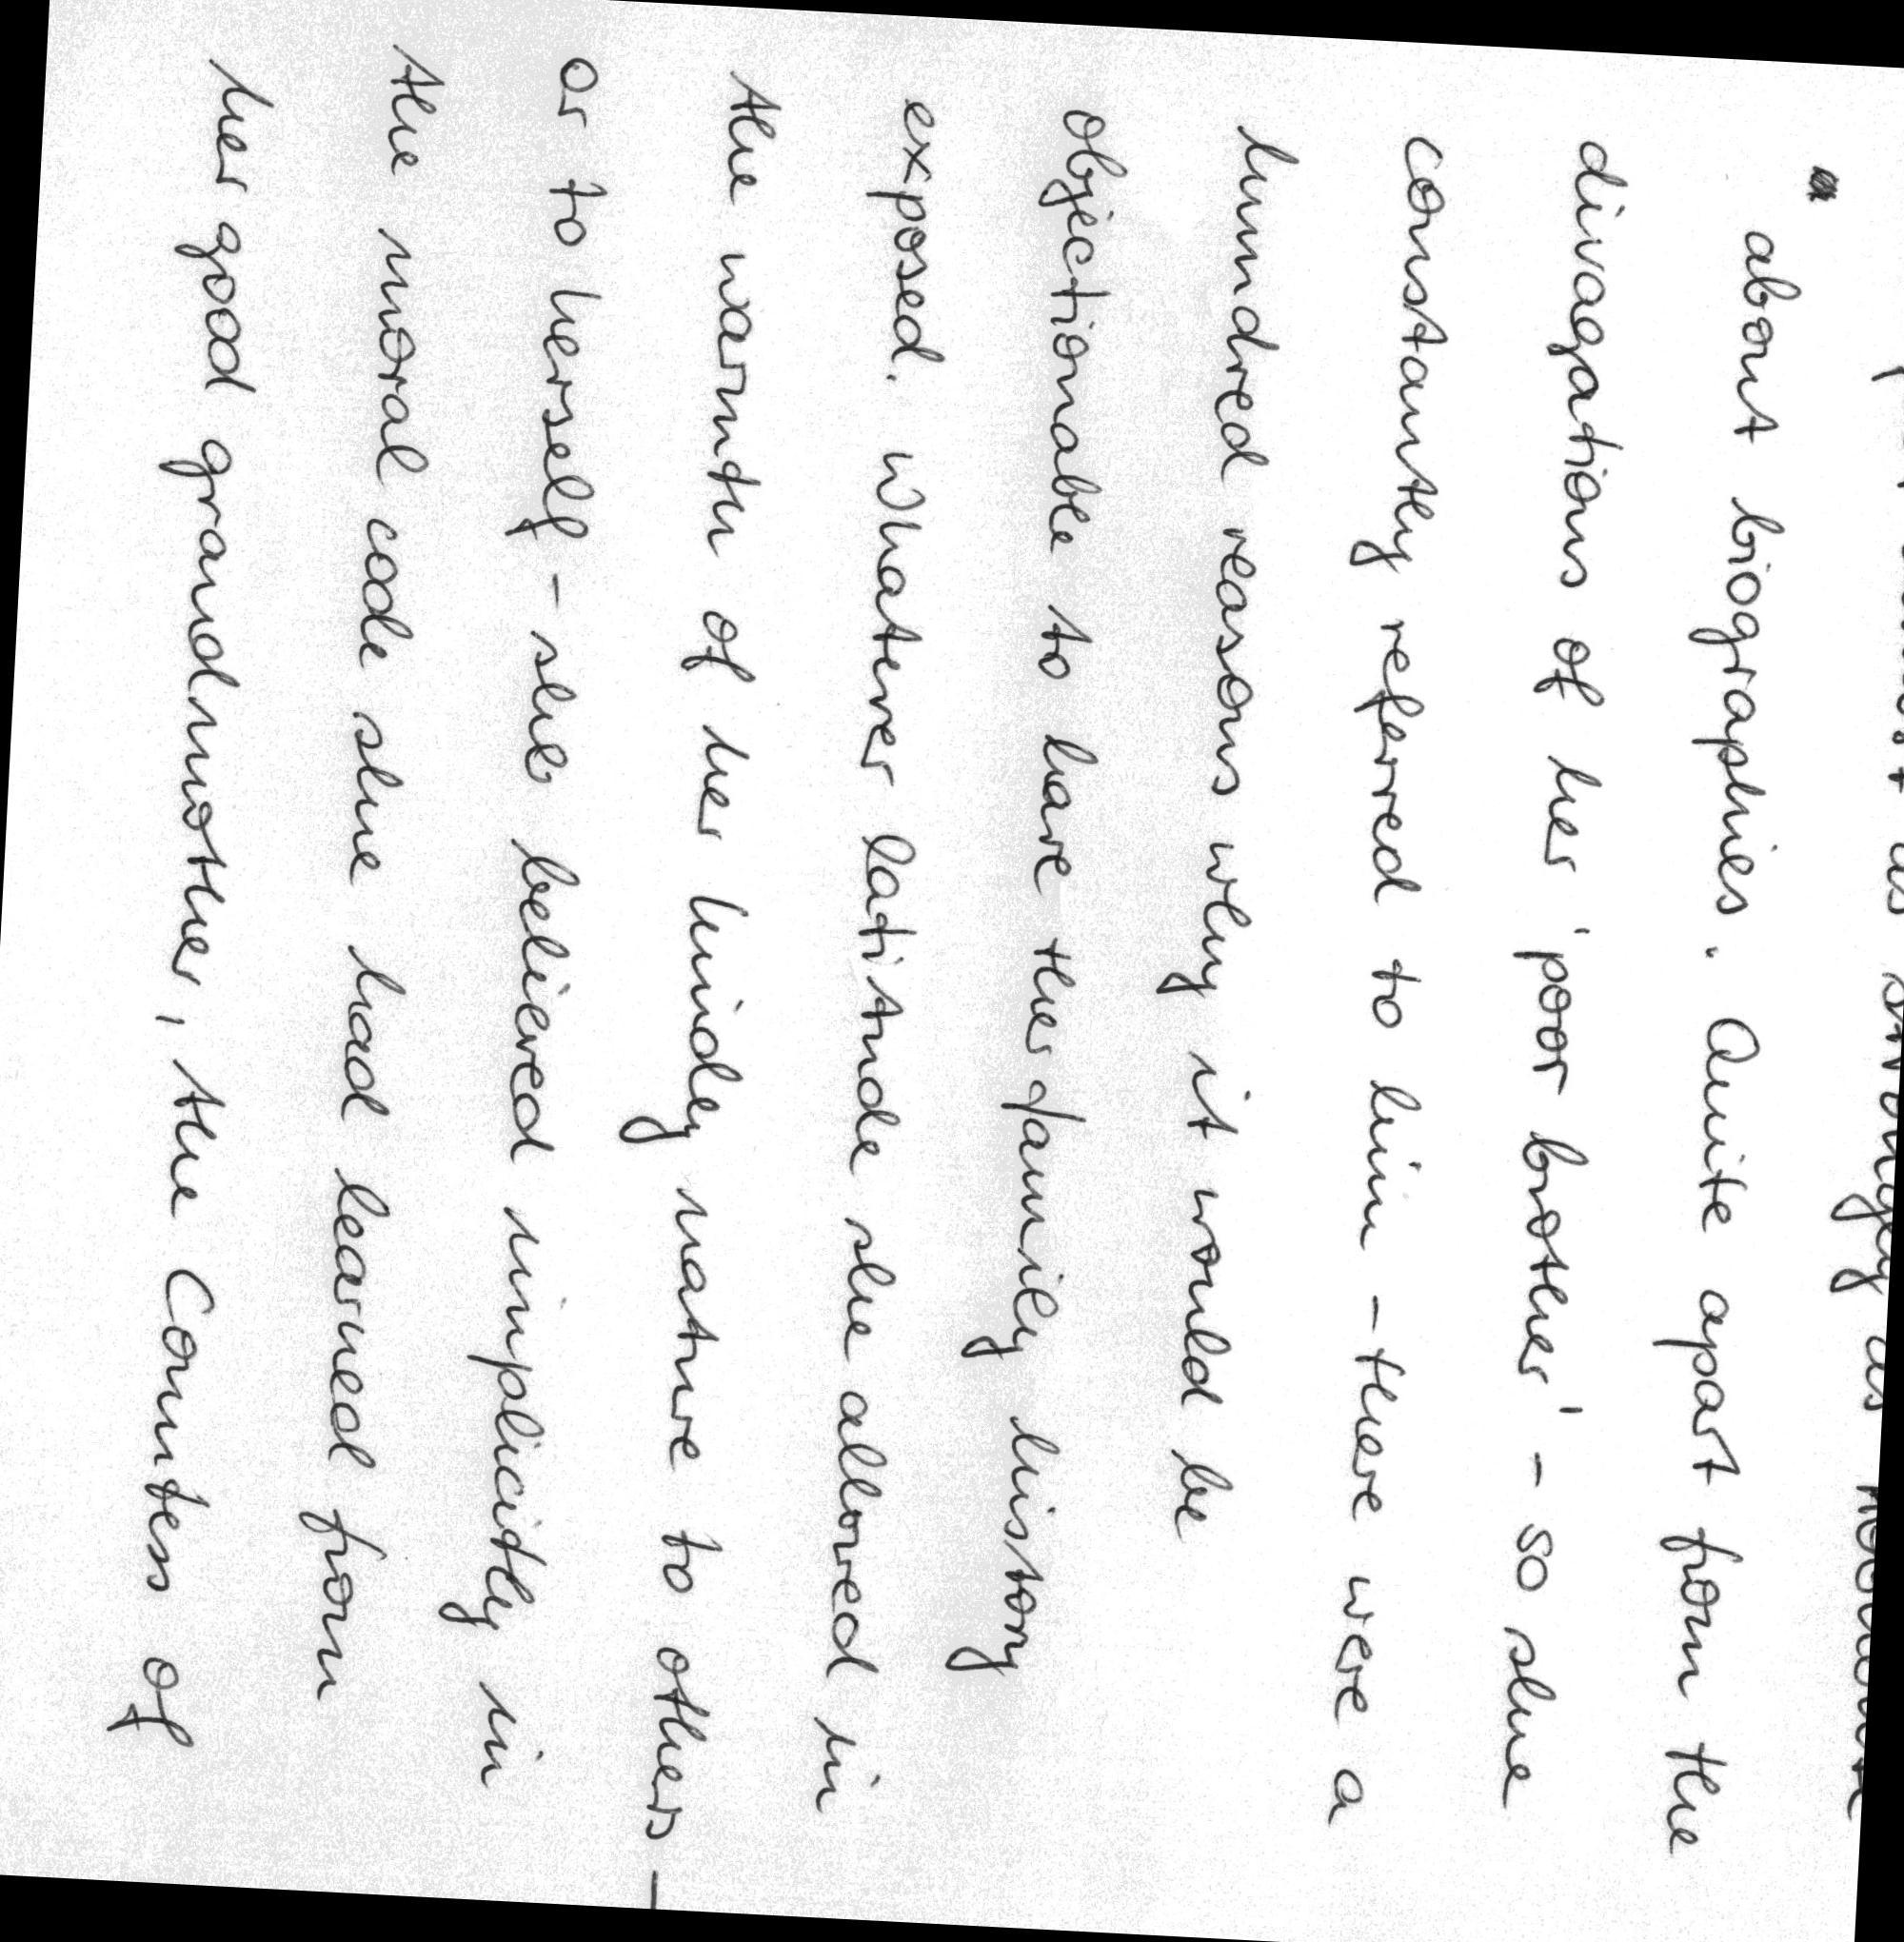 as strongly as
about biographies. Quite apart from the
divagations of her 'poor brother' - so she
constantly referred to him - there were a
hundred reasons why it would be
objectionable to have their family history
exposed. Whatever latitude she allowed in
the warmth of her kindly nature to others -
or to herself - she believed implicitly in
the moral code she had learned from
her good grandmother, the Countess of